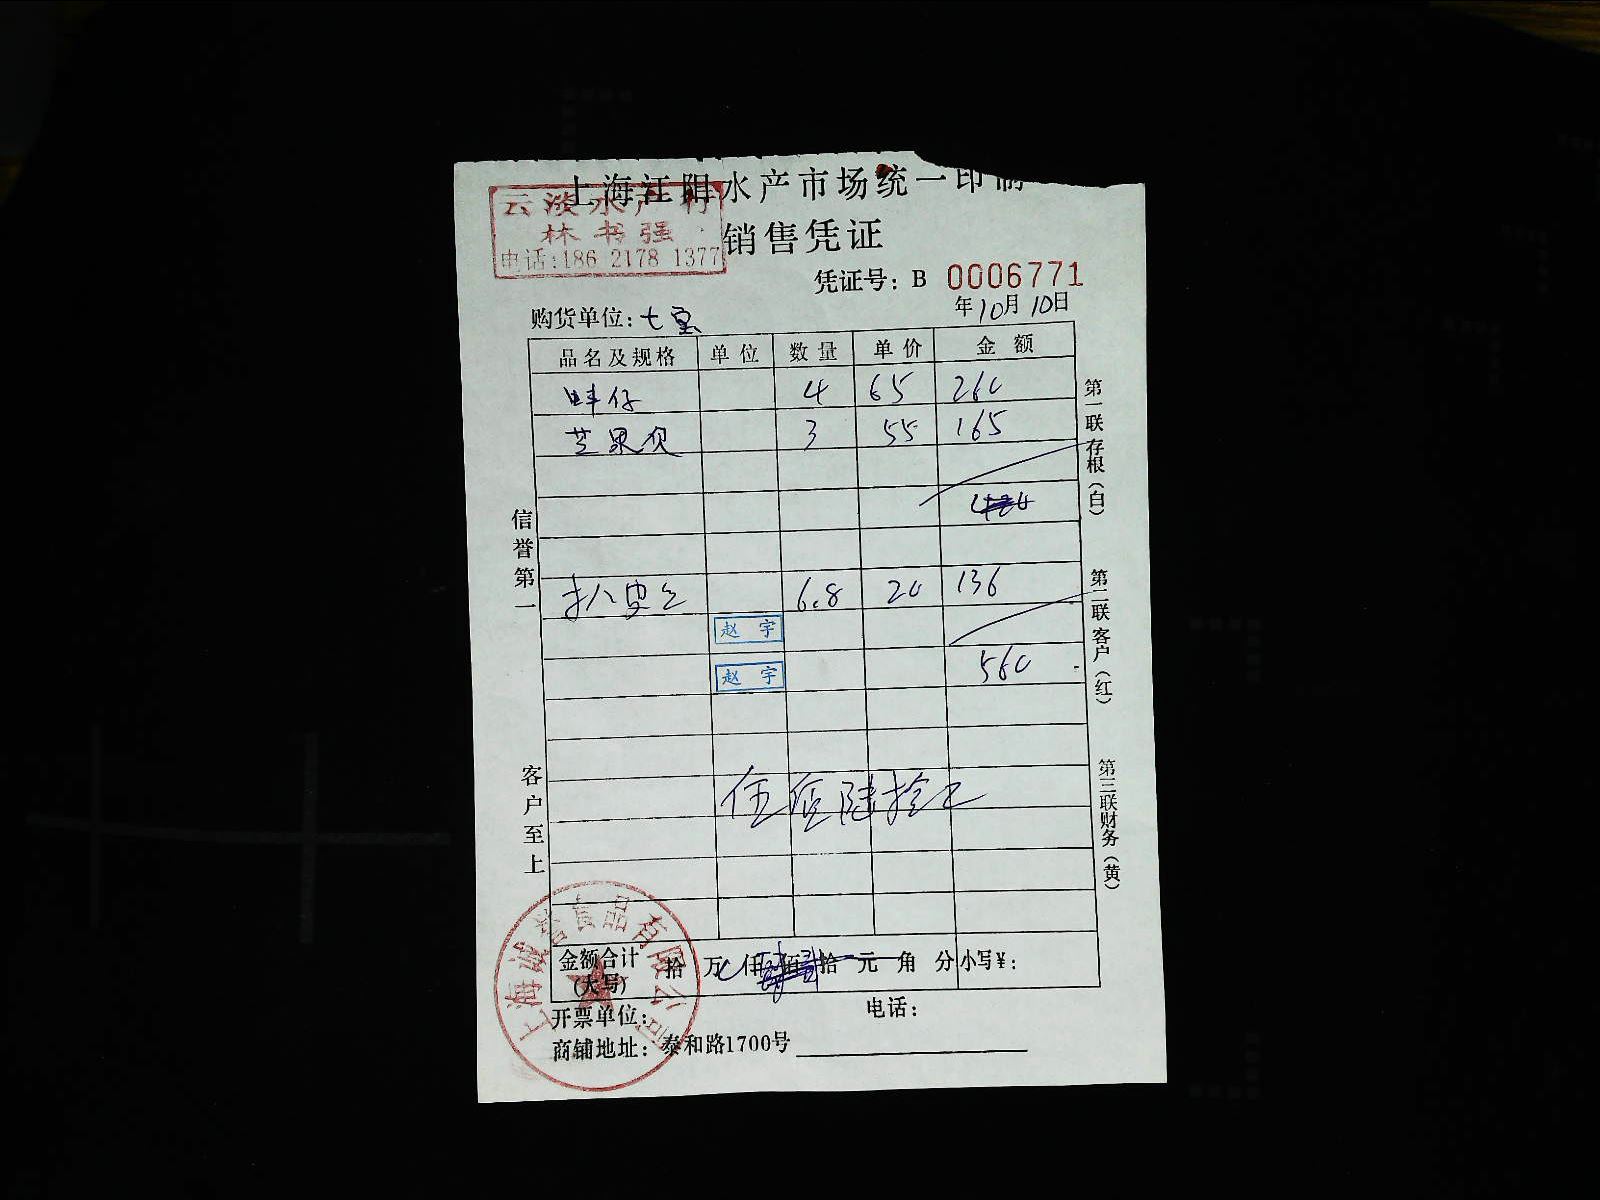 上海江阳水产市场统一印制
云淡水产行
林书强
电话:186 2178 1377
销售凭证
凭证号: B 0006771
年10月10日
购货单位: 七宝
品名及规格 单位 数量 单价 金额
蚌仔 4 65 260
芒果贝 3 55 165
扒皮鱼 6.8 20 136
赵宇
赵宇 560
伍佰陆拾元
金额合计 拾万仟佰拾元角分 小写¥:
(大写)
开票单位: 电话:
商铺地址: 泰和路1700号
上海诚誉食品有限公司
信誉第一
客户至上
第一联存根(白)
第二联客户(红)
第三联财务(黄)